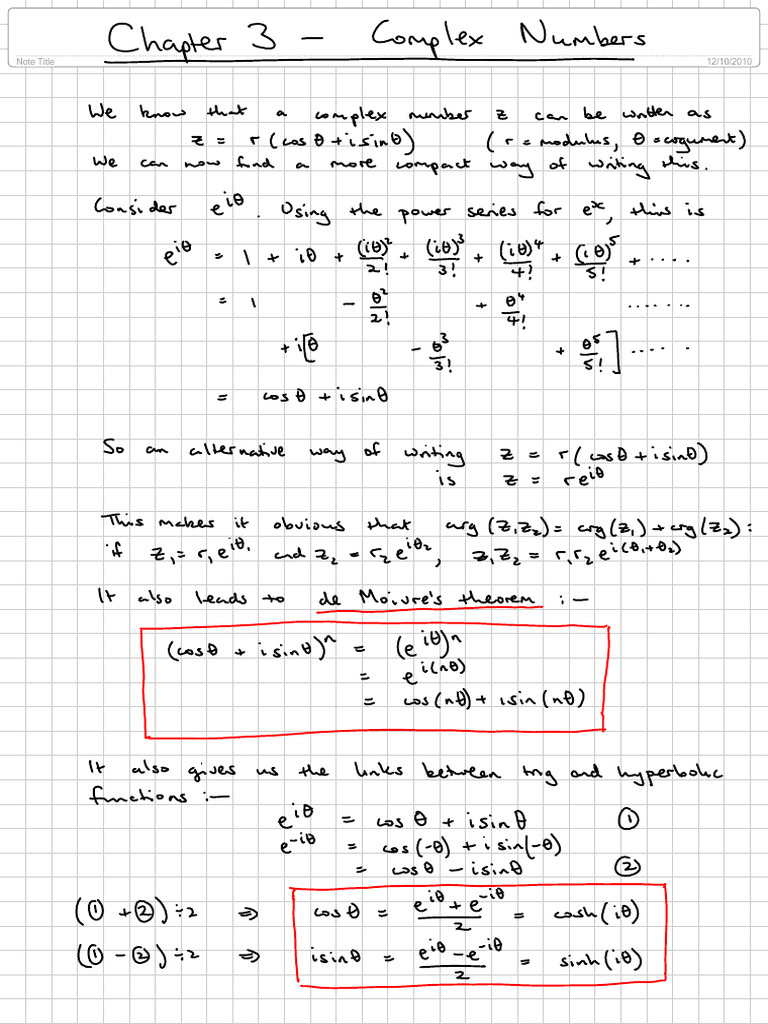 Chapter 3 – Complex Numbers
Note Title
12/10/2010
We know that a complex number z can be written as
z = r(cosθ + i sinθ) (r = modulus, θ = argument)
We can now find a more compact way of writing this.
Consider e^{iθ}. Using the power series for e^x, this is
e^{iθ} = 1 + iθ + (iθ)²/2! + (iθ)³/3! + (iθ)⁴/4! + (iθ)⁵/5! + ....
= 1 - θ²/2! + θ⁴/4! ......
+ i[θ - θ³/3! + θ⁵/5!] .....
= cosθ + i sinθ
So an alternative way of writing z = r(cosθ + i sinθ)
is z = re^{iθ}
This makes it obvious that arg(z₁z₂) = arg(z₁) + arg(z₂):
if z₁ = r₁e^{iθ₁} and z₂ = r₂e^{iθ₂}, z₁z₂ = r₁r₂e^{i(θ₁+θ₂)}
It also leads to de Moivre's theorem :-
(cosθ + i sinθ)^n = (e^{iθ})^n
= e^{i(nθ)}
= cos(nθ) + i sin(nθ)
It also gives us the links between trig and hyperbolic
functions :-
e^{iθ} = cosθ + i sinθ ①
e^{-iθ} = cos(-θ) + i sin(-θ)
= cosθ - i sinθ ②
(① + ②) ÷ 2 ⇒ cosθ = (e^{iθ} + e^{-iθ})/2 = cosh(iθ)
(① - ②) ÷ 2 ⇒ i sinθ = (e^{iθ} - e^{-iθ})/2 = sinh(iθ)